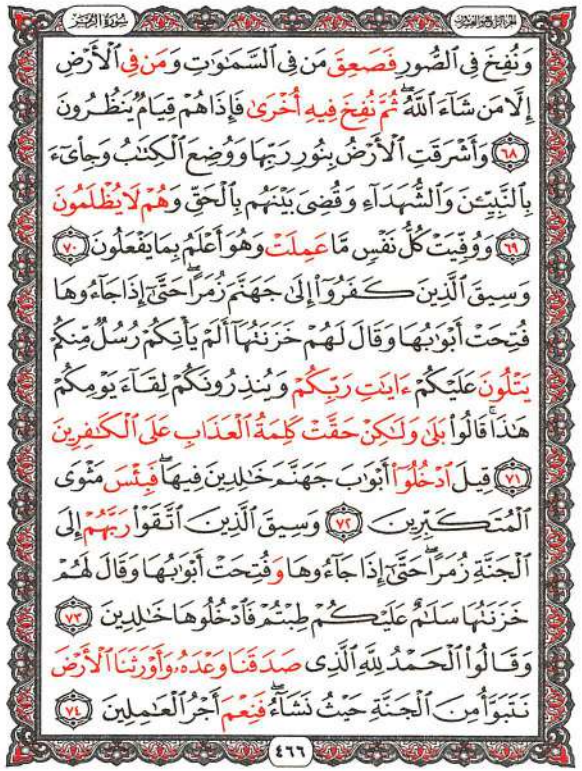 الجزء الرابع والعشرون سورة الزمر
وَنُفِخَ فِى ٱلصُّورِ فَصَعِقَ مَن فِى ٱلسَّمَٰوَٰتِ وَمَن فِى ٱلْأَرْضِ
إِلَّا مَن شَآءَ ٱللَّهُ ۖ ثُمَّ نُفِخَ فِيهِ أُخْرَىٰ فَإِذَا هُمْ قِيَامٌ يَنظُرُونَ
٦٨ وَأَشْرَقَتِ ٱلْأَرْضُ بِنُورِ رَبِّهَا وَوُضِعَ ٱلْكِتَٰبُ وَجِا۟ىٓءَ
بِٱلنَّبِيِّـۧنَ وَٱلشُّهَدَآءِ وَقُضِىَ بَيْنَهُم بِٱلْحَقِّ وَهُمْ لَا يُظْلَمُونَ
٦٩ وَوُفِّيَتْ كُلُّ نَفْسٍ مَّا عَمِلَتْ وَهُوَ أَعْلَمُ بِمَا يَفْعَلُونَ ٧٠
وَسِيقَ ٱلَّذِينَ كَفَرُوٓا۟ إِلَىٰ جَهَنَّمَ زُمَرًا ۖ حَتَّىٰٓ إِذَا جَآءُوهَا
فُتِحَتْ أَبْوَٰبُهَا وَقَالَ لَهُمْ خَزَنَتُهَآ أَلَمْ يَأْتِكُمْ رُسُلٌ مِّنكُمْ
يَتْلُونَ عَلَيْكُمْ ءَايَٰتِ رَبِّكُمْ وَيُنذِرُونَكُمْ لِقَآءَ يَوْمِكُمْ
هَٰذَا ۚ قَالُوا۟ بَلَىٰ وَلَٰكِنْ حَقَّتْ كَلِمَةُ ٱلْعَذَابِ عَلَى ٱلْكَٰفِرِينَ
٧١ قِيلَ ٱدْخُلُوٓا۟ أَبْوَٰبَ جَهَنَّمَ خَٰلِدِينَ فِيهَا ۖ فَبِئْسَ مَثْوَى
ٱلْمُتَكَبِّرِينَ ٧٢ وَسِيقَ ٱلَّذِينَ ٱتَّقَوْا۟ رَبَّهُمْ إِلَى
ٱلْجَنَّةِ زُمَرًا ۖ حَتَّىٰٓ إِذَا جَآءُوهَا وَفُتِحَتْ أَبْوَٰبُهَا وَقَالَ لَهُمْ
خَزَنَتُهَا سَلَٰمٌ عَلَيْكُمْ طِبْتُمْ فَٱدْخُلُوهَا خَٰلِدِينَ ٧٣
وَقَالُوا۟ ٱلْحَمْدُ لِلَّهِ ٱلَّذِى صَدَقَنَا وَعْدَهُۥ وَأَوْرَثَنَا ٱلْأَرْضَ
نَتَبَوَّأُ مِنَ ٱلْجَنَّةِ حَيْثُ نَشَآءُ ۖ فَنِعْمَ أَجْرُ ٱلْعَٰمِلِينَ ٧٤
٤٦٦